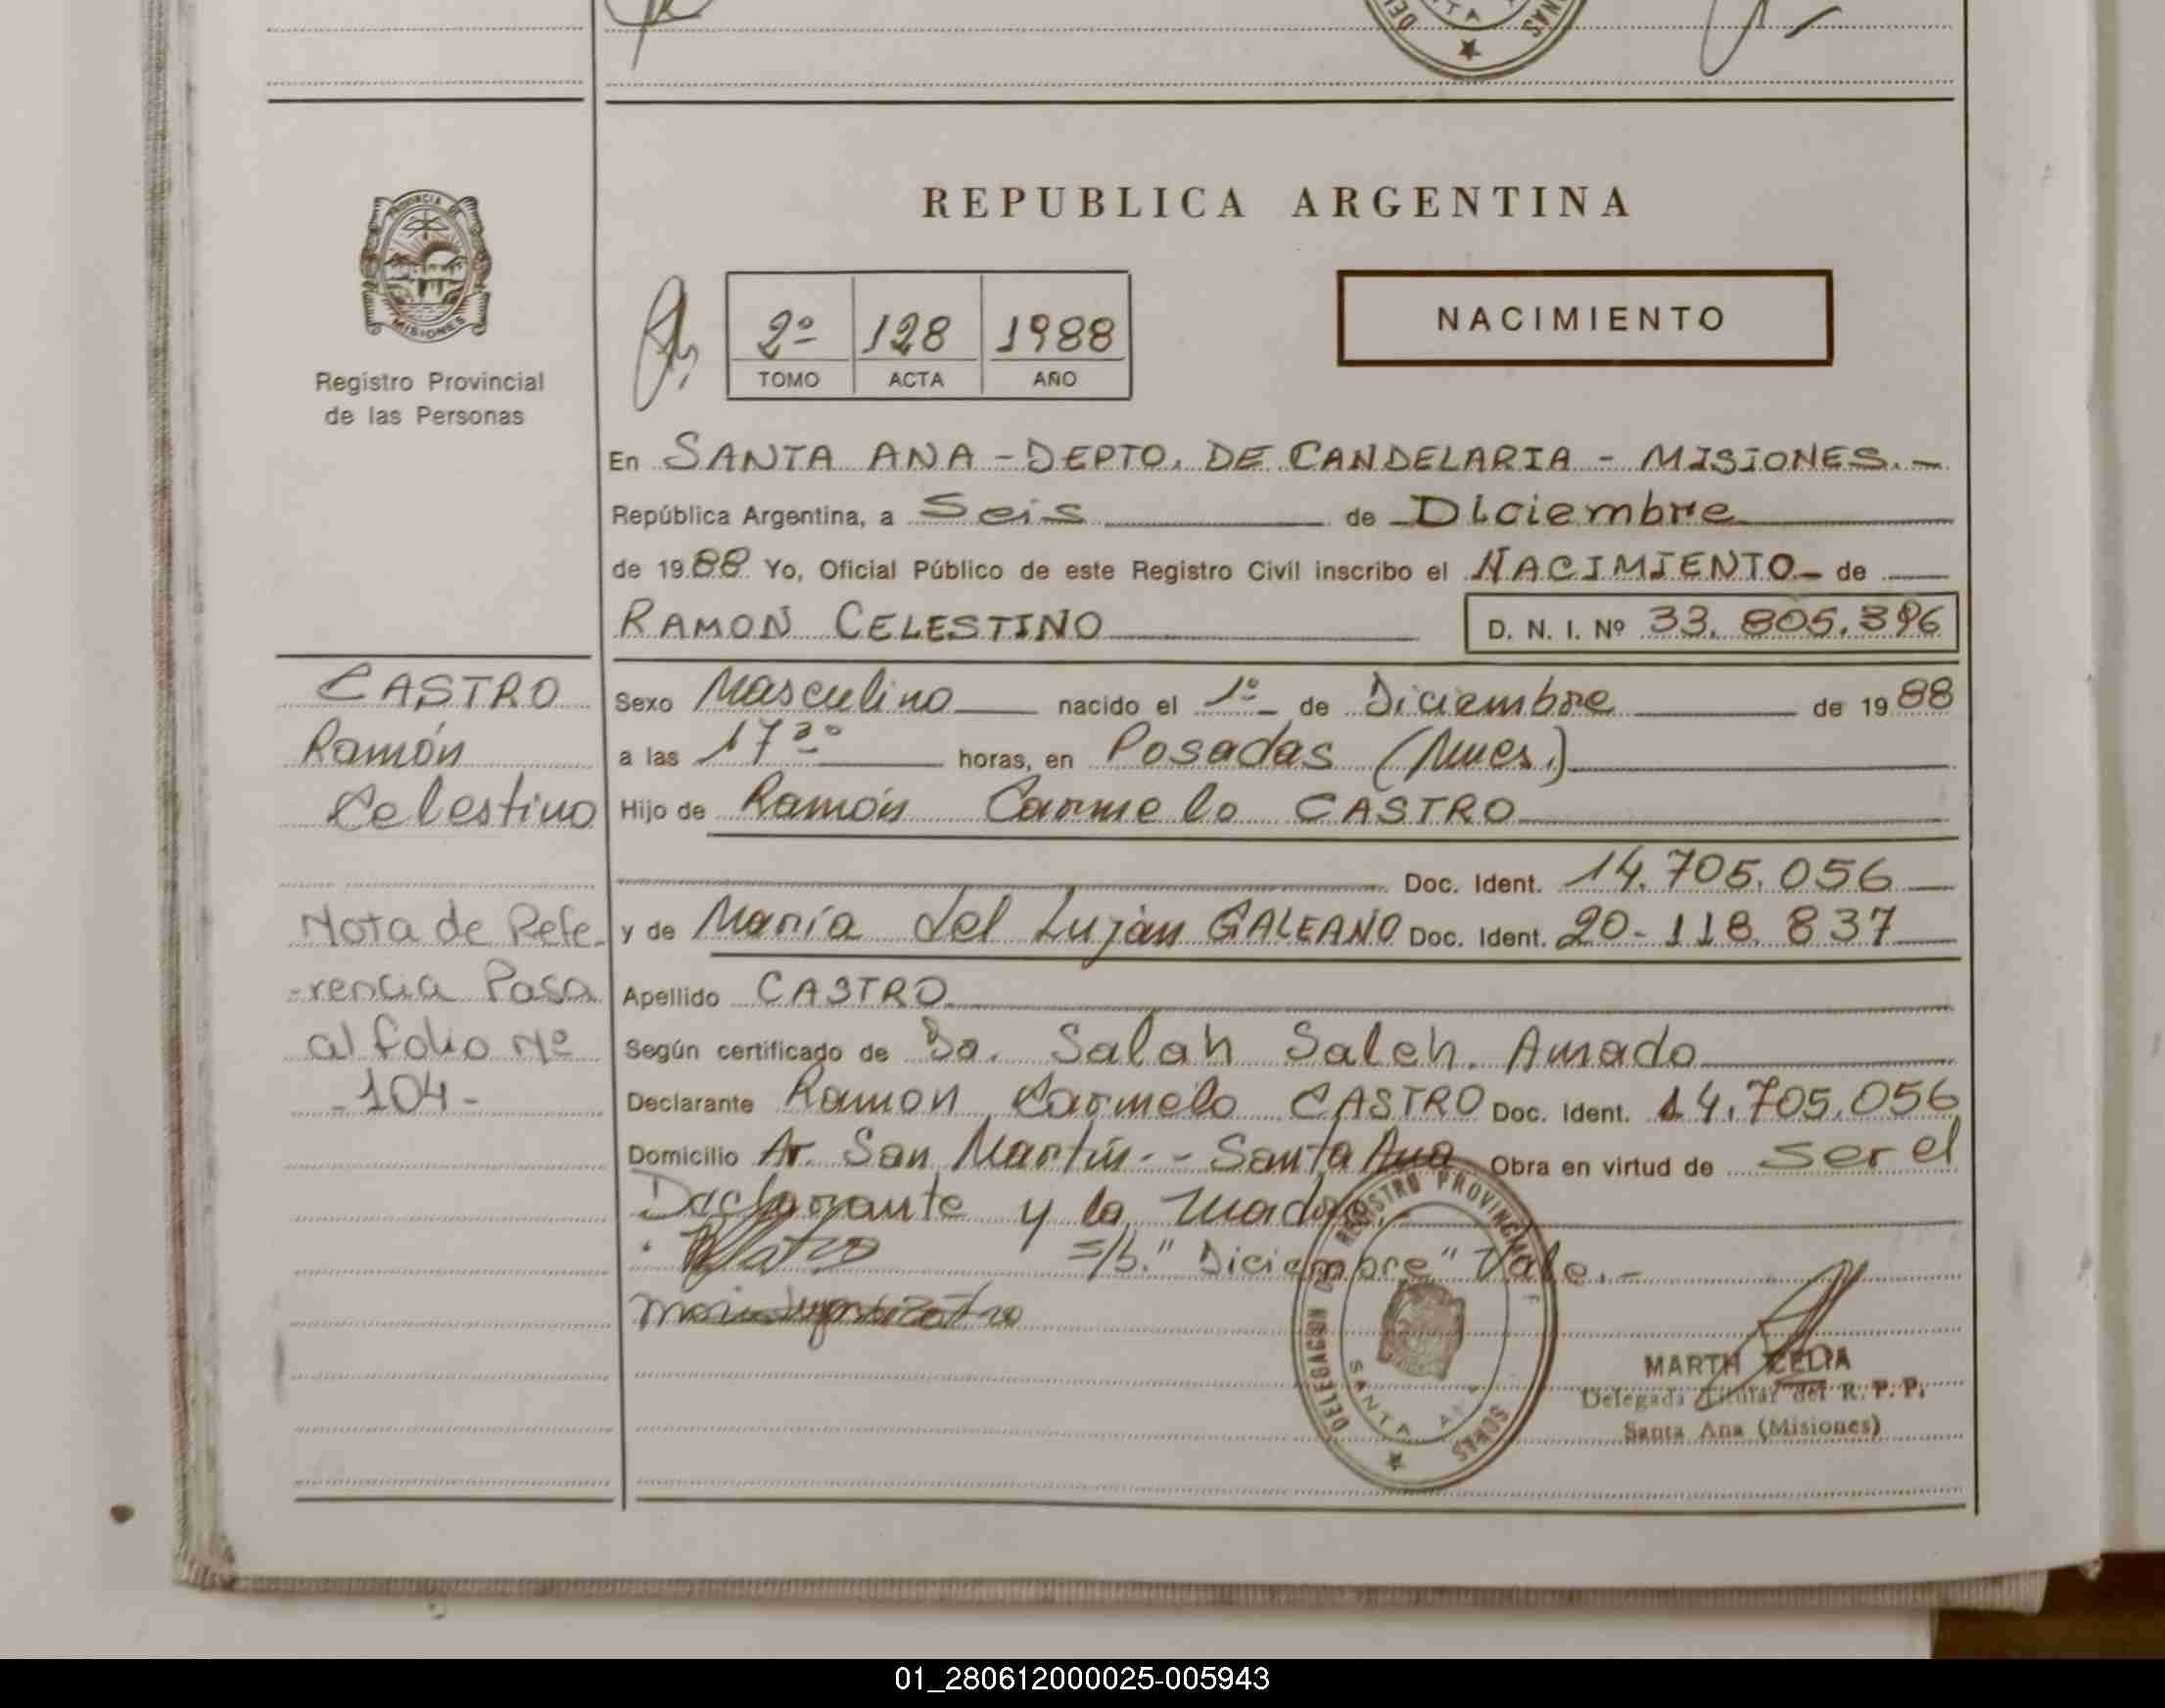 REPUBLICA ARGENTINA
PROVINCIA DE
MISIONES
Registro Provincial
de las Personas
2º 128 1988
TOMO ACTA AÑO
NACIMIENTO
En SANTA ANA - DEPTO. DE CANDELARIA - MISIONES. -
República Argentina, a Seis de Diciembre
de 1988 Yo, Oficial Público de este Registro Civil inscribo el NACIMIENTO - de
RAMON CELESTINO D. N. I. Nº 33.805.396
CASTRO
Ramón
Celestino
Nota de Refe-
-rencia Pasa
al folio Nº
-104-
Sexo Masculino nacido el 1º de Diciembre de 1988
a las 17 30 horas, en Posadas (Mnes.)
Hijo de Ramón Carmelo CASTRO
Doc. Ident. 14.705.056
y de María del Luján GALEANO Doc. Ident. 20-118.837
Apellido CASTRO
Según certificado de Salah Saleh. Amado
Declarante Ramon Carmelo CASTRO Doc. Ident. 14.705.056
Domicilio Av. San Martín - - Santa Ana Obra en virtud de ser el
Declarante y la madre.
S/B. "Diciembre" Vale. -
REGISTRO PROVINCIAL
DELEGACION
SANTA
MARTH CELIA
Delegada Titular del R. P. P.
Santa Ana (Misiones)
01_280612000025-005943